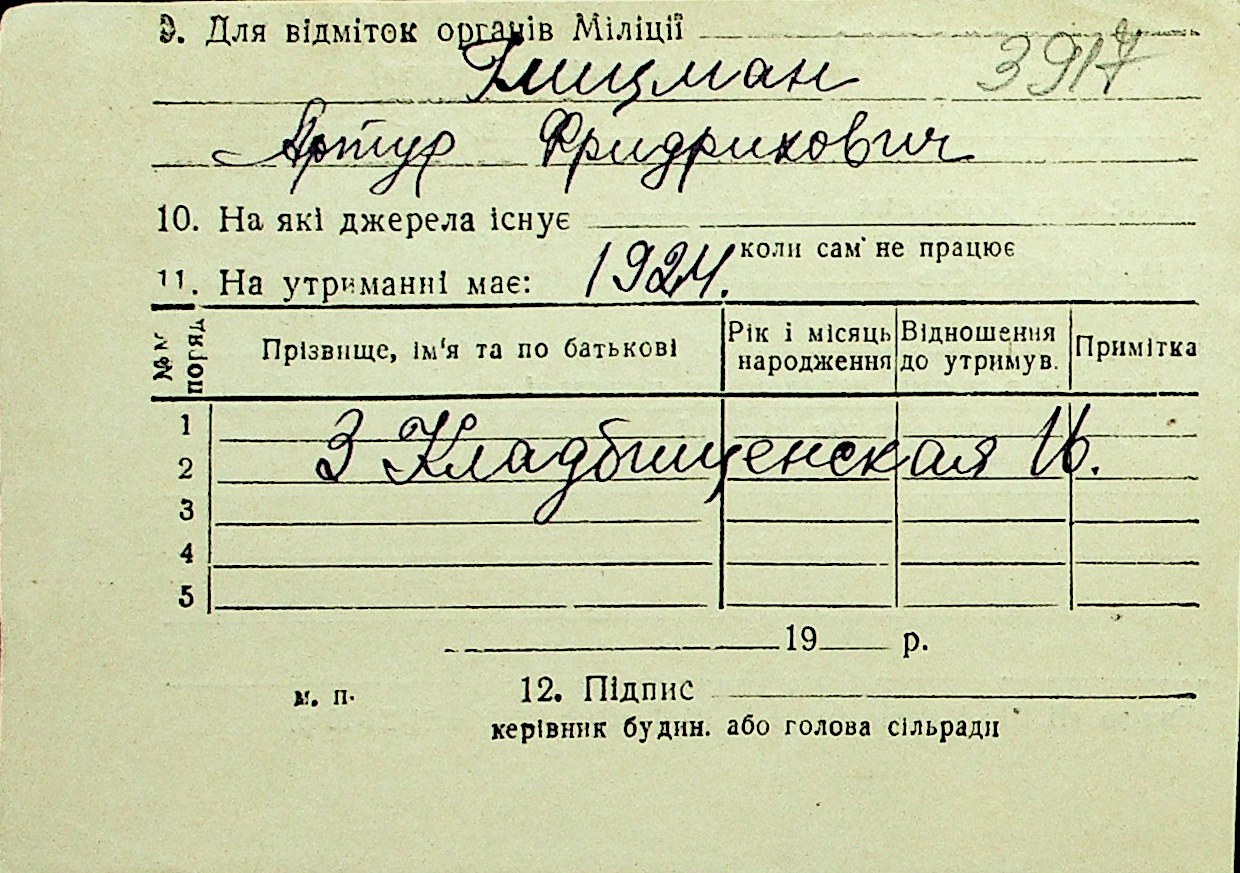 9. Для відміток органів Міліції
Глицман 3917
Артур Фридрихович
10. На які джерела існує
коли сам не працює
11. На утриманні має: 1924.
№№ поряд
Прізвище, ім'я та по батькові
Рік і місяць народження
Відношення до утримув.
Примітка
1
2
3 Кладбищенская 16.
3
4
5
19 р.
м. п. 12. Підпис
керівник будин. або голова сільради